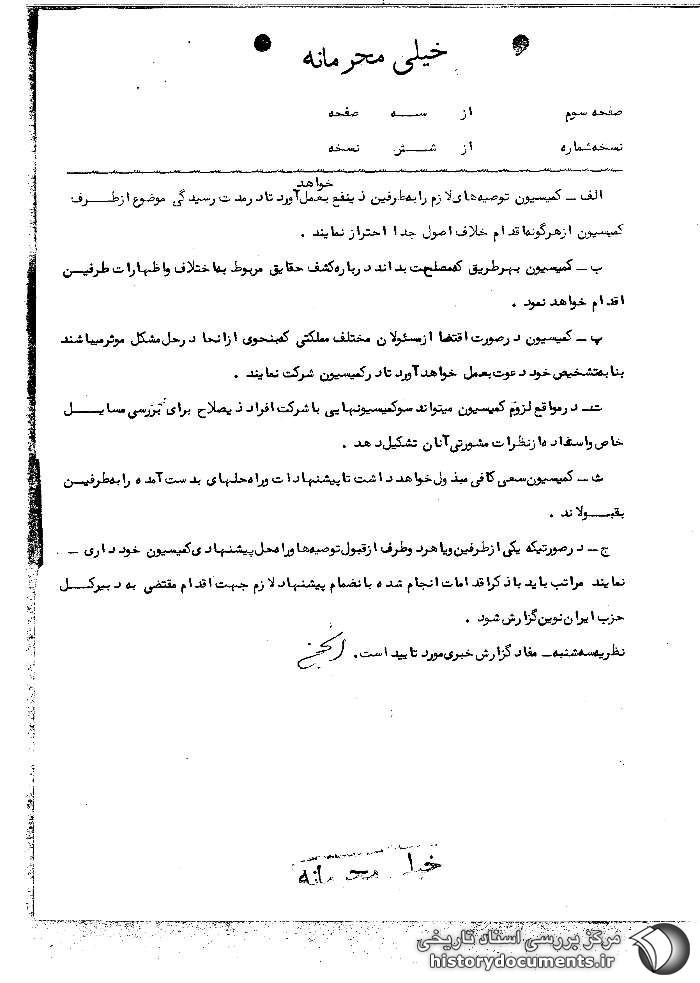 خیلی محرمانه
صفحه سوم از سه صفحه
نسخه شماره از شش نسخه
خواهد
الف ـ کمیسیون توصیه‌های لازم را به طرفین ذینفع بعمل آورد تا در مدت رسیدگی موضوع از طرف
کمیسیون از هرگونه اقدام خلاف اصول جدا احتراز نمایند .
ب ـ کمیسیون بهر طریق که مصلحت بداند درباره کشف حقایق مربوط به اختلاف و اظهارات طرفین
اقدام خواهد نمود .
پ ـ کمیسیون در صورت اقتضا از مسئولان مختلف مملکتی که بنحوی از انحا در حل مشکل موثر میباشند
بنا به تشخیص خود دعوت بعمل خواهد آورد تا در کمیسیون شرکت نمایند .
ت ـ در مواقع لزوم کمیسیون میتواند سوکمیسیونهایی با شرکت افراد ذیصلاح برای بررسی مسایل
خاص و استفاده از نظرات مشورتی آنان تشکیل دهد .
ث ـ کمیسیون سعی کافی مبذول خواهد داشت تا پیشنهادات و راه حلهای بدست آمده را به طرفین
بقبولاند .
ج ـ در صورتیکه یکی از طرفین و یا هر دو طرف از قبول توصیه‌ها و راه حل پیشنهادی کمیسیون خودداری ـ
نمایند مراتب باید با ذکر اقدامات انجام شده بانضمام پیشنهاد لازم جهت اقدام مقتضی به دبیرکل
حزب ایران نوین گزارش شود .
نظریه سه‌شنبه ـ مفاد گزارش خبری مورد تایید است .
خیلی محرمانه
مرکز بررسی اسناد تاریخی
historydocuments.ir